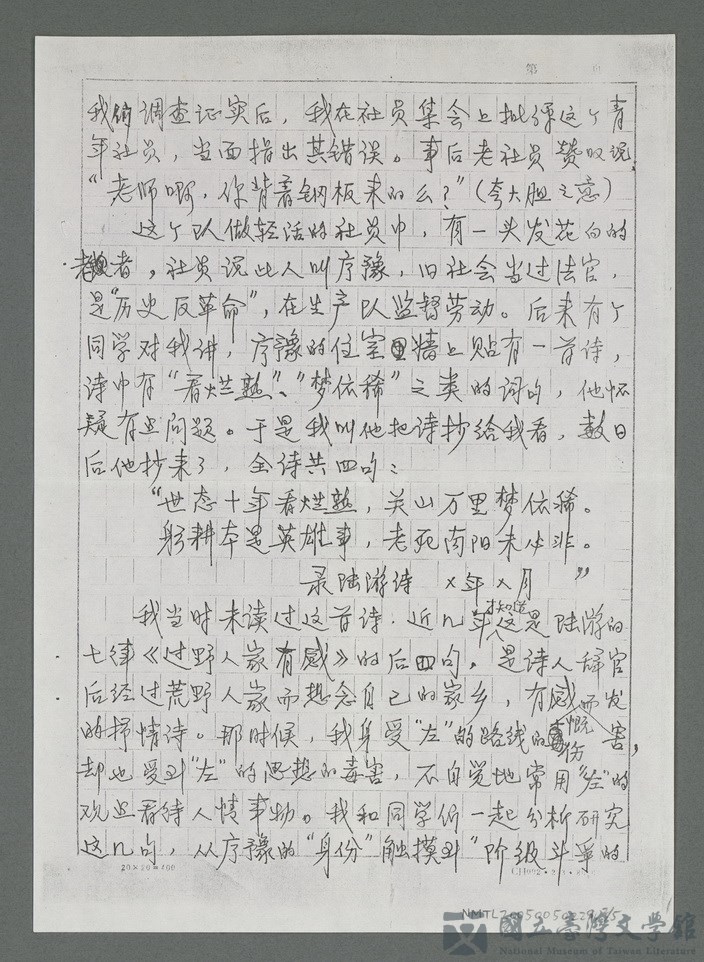 第
我俩调查证实后，我在社员集会上批评这个青
年社员，当面指出其错误。事后老社员赞叹说，
“老师啊，你背着钢板来的么？”（夸大胆之意）
这个队做轻活的社员中，有一头发花白的
老者，社员说此人叫序豫，旧社会当过法官，
是“历史反革命”，在生产队监督劳动。后来有个
同学对我讲，序豫的住室墙上贴有一首诗，
诗中有“看烂熟”、“梦依稀”之类的词句，他怀
疑有点问题。于是我叫他把诗抄给我看，数日
后他抄来了，全诗共四句：
“世态十年看烂熟，关山万里梦依稀。
躬耕本是英雄事，老死南阳未必非。
录陆游诗 ×年×月”
我当时未读过这首诗，近几年才知道这是陆游的
七律《过野人家有感》的后四句，是诗人辞官
后经过荒野人家而想念自己的家乡，有感而发
的抒情诗。那时候，我身受“左”的路线的伤害，
却也受到“左”的思想的毒害，不自觉地常用“左”的
观点看待人情事物。我和同学们一起分析研究
这几句，从序豫的“身份”触摸到“阶级斗争的
20×20=400
國立臺灣文學館
National Museum of Taiwan Literature